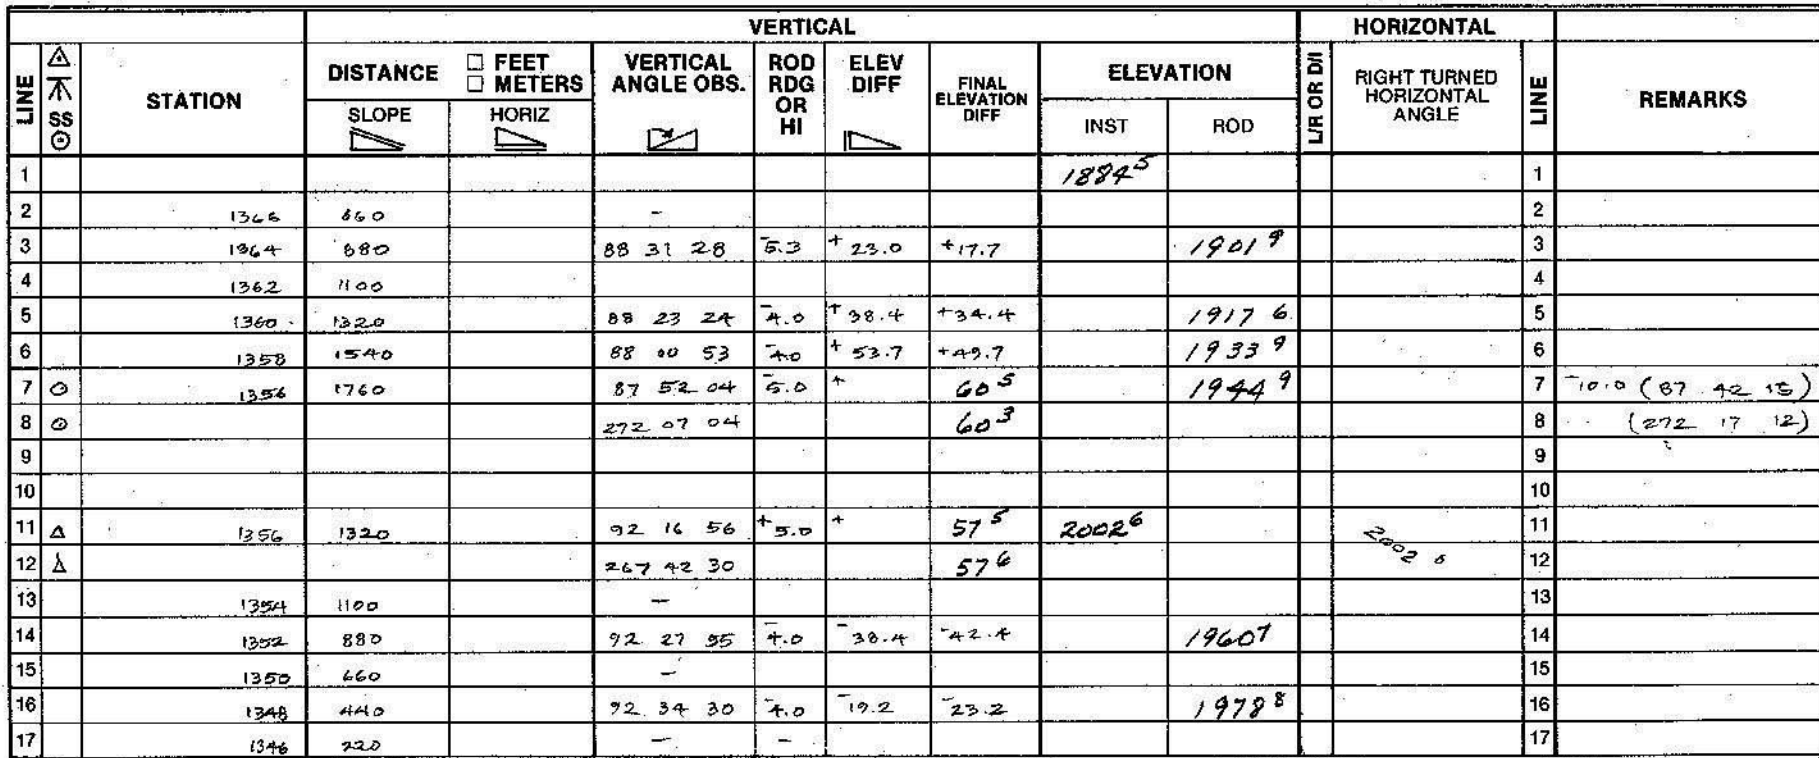 VERTICAL HORIZONTAL
LINE SS STATION DISTANCE □ FEET □ METERS SLOPE HORIZ VERTICAL ANGLE OBS. ROD RDG OR HI ELEV DIFF FINAL ELEVATION DIFF ELEVATION INST ROD L/R OR D/I RIGHT TURNED HORIZONTAL ANGLE LINE REMARKS
1 1884 5 1
2 1366 860 - 2
3 1364 880 88 31 28 -5.3 +23.0 +17.7 1901 9 3
4 1362 1100 4
5 1360 1320 88 23 24 -4.0 +38.4 +34.4 1917 6 5
6 1358 1540 88 00 53 -4.0 +53.7 +49.7 1933 9 6
7 1356 1760 87 52 04 -5.0 + 60 5 1944 9 7 -10.0 (87 42 15)
8 272 07 04 60 3 8 (272 17 12)
9 9
10 10
11 △ 1356 1320 92 16 56 +5.0 + 57 5 2002 6 11
2002 6
12 267 42 30 57 6 12
13 1354 1100 - 13
14 1352 880 92 27 55 -4.0 -38.4 -42.4 1960 1 14
15 1350 660 - 15
16 1348 440 92 34 30 -4.0 -19.2 -23.2 1978 8 16
17 1346 220 - - 17